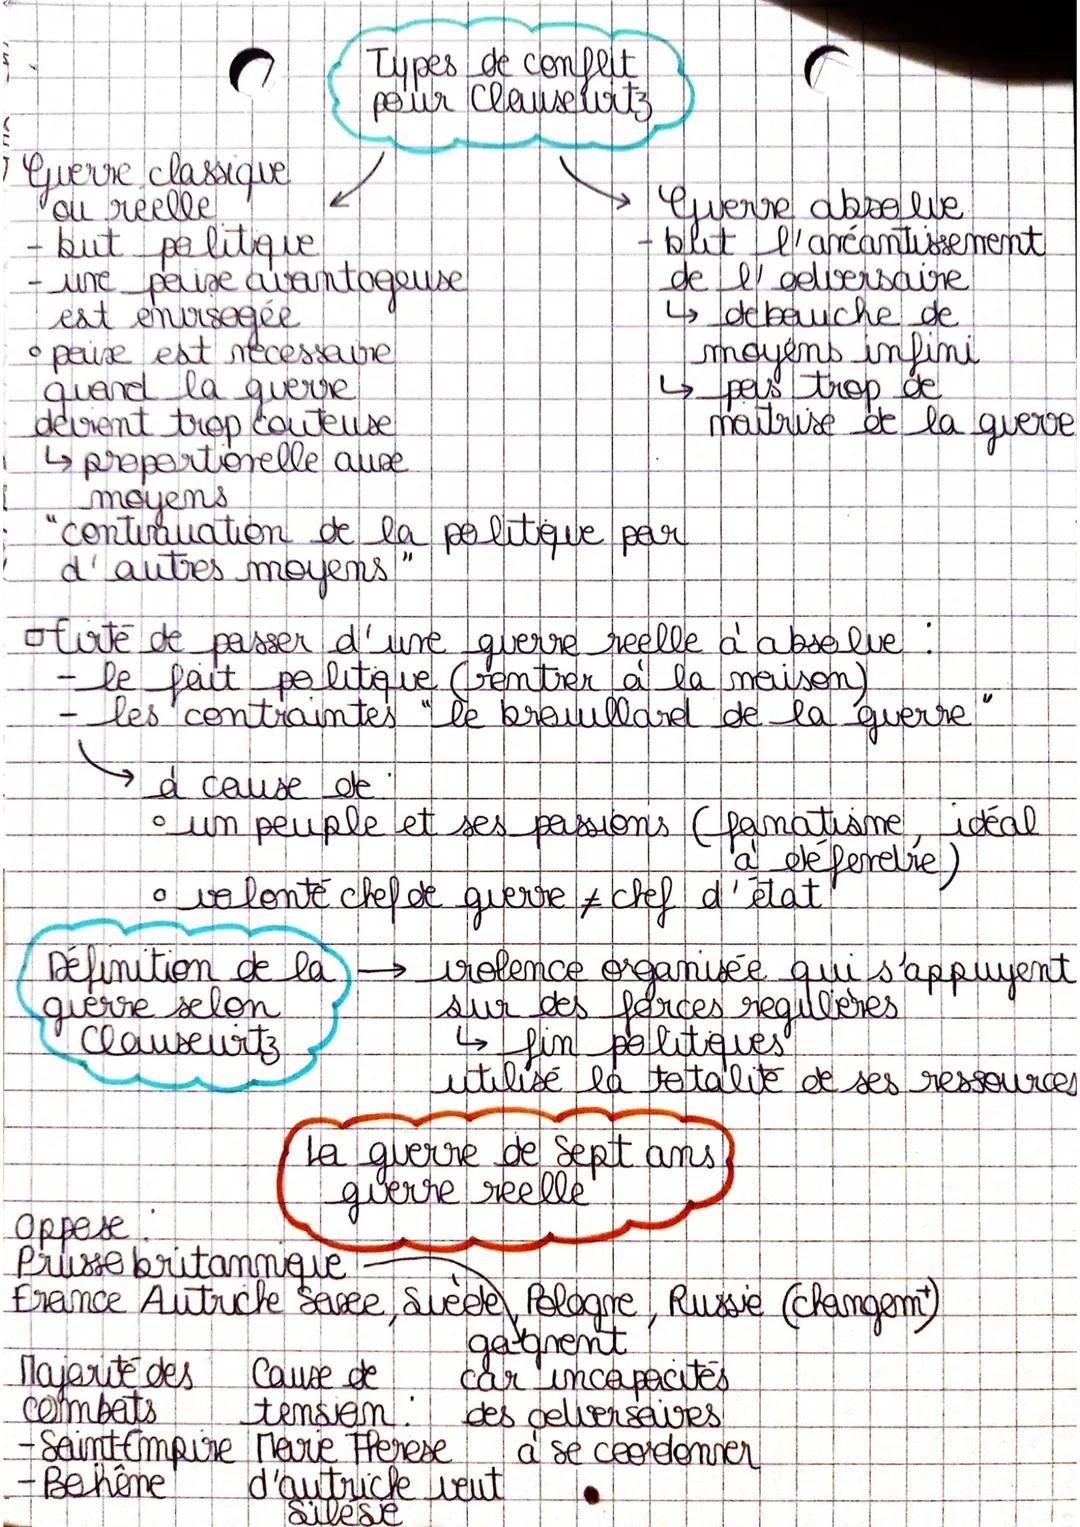 Types de conflit
pour Clausewitz
Guerre classique
ou réelle
- but politique
- une paix avantageuse
est envisagée
° paix est nécessaire
quand la guerre
devient trop couteuse
↳ proportionelle aux
moyens
"continuation de la politique par
d'autres moyens"
Guerre absolue
- but l'anéantissement
de l'adversaire
↳ debauche de
moyens infini
↳ pas trop de
maitrise de la guerre
de passer d'une guerre réelle à absolue :
- le fait politique (rentrer à la maison)
- les contraintes "le brouillard de la guerre"
→ à cause de :
° un peuple et ses passions (fanatisme, idéal
à défendre)
° volonté chef de guerre ≠ chef d'état
Définition de la
guerre selon
Clausewitz
→ violence organisée qui s'appuyent
sur des forces regulières
↳ fin politiques
utilise la totalité de ses ressources
La guerre de Sept ans
guerre réelle
Oppose :
Prusse britannique
France Autriche Saxe, Suède, Pologne, Russie (changemt)
gagnent
car incapacités
des adversaires
à se coordonner
Majorité des
combats
- Saint-Empire
- Bohême
Cause de
tension :
Marie Therese
d'autriche veut
Silésie